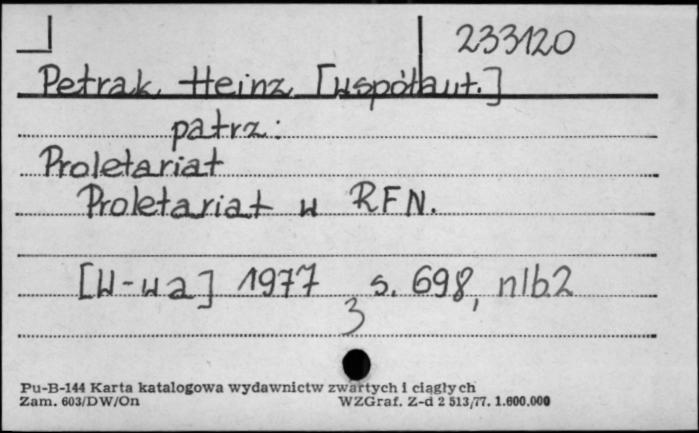 233120
Petrak, Heinz [współaut.]
patrz:
Proletariat
Proletariat w RFN.
[W-wa] 1977 s. 698, nlb. 2
3
Pu-B-144 Karta katalogowa wydawnictw zwartych i ciągłych
Zam. 603/DW/On WZGraf. Z-d 2 513/77. 1.600.000